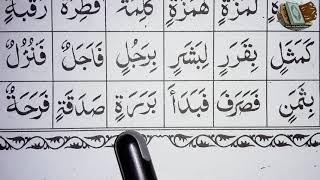 لُمَزَةٍ هُمَزَةٍ كَلِمَةُ فِطْرَةَ رَقَبَةٍ
كَمَثَلِ بِقَرَرٍ لِبَشَرٍ بِرَجُلٍ فَاَجَلٌ فَنُزُلٌ
بِثَمَنٍ فَصَرَفَ فَبَدَأَ بَرَرَةٍ صَدَقَةٍ فَرِحَةٌ